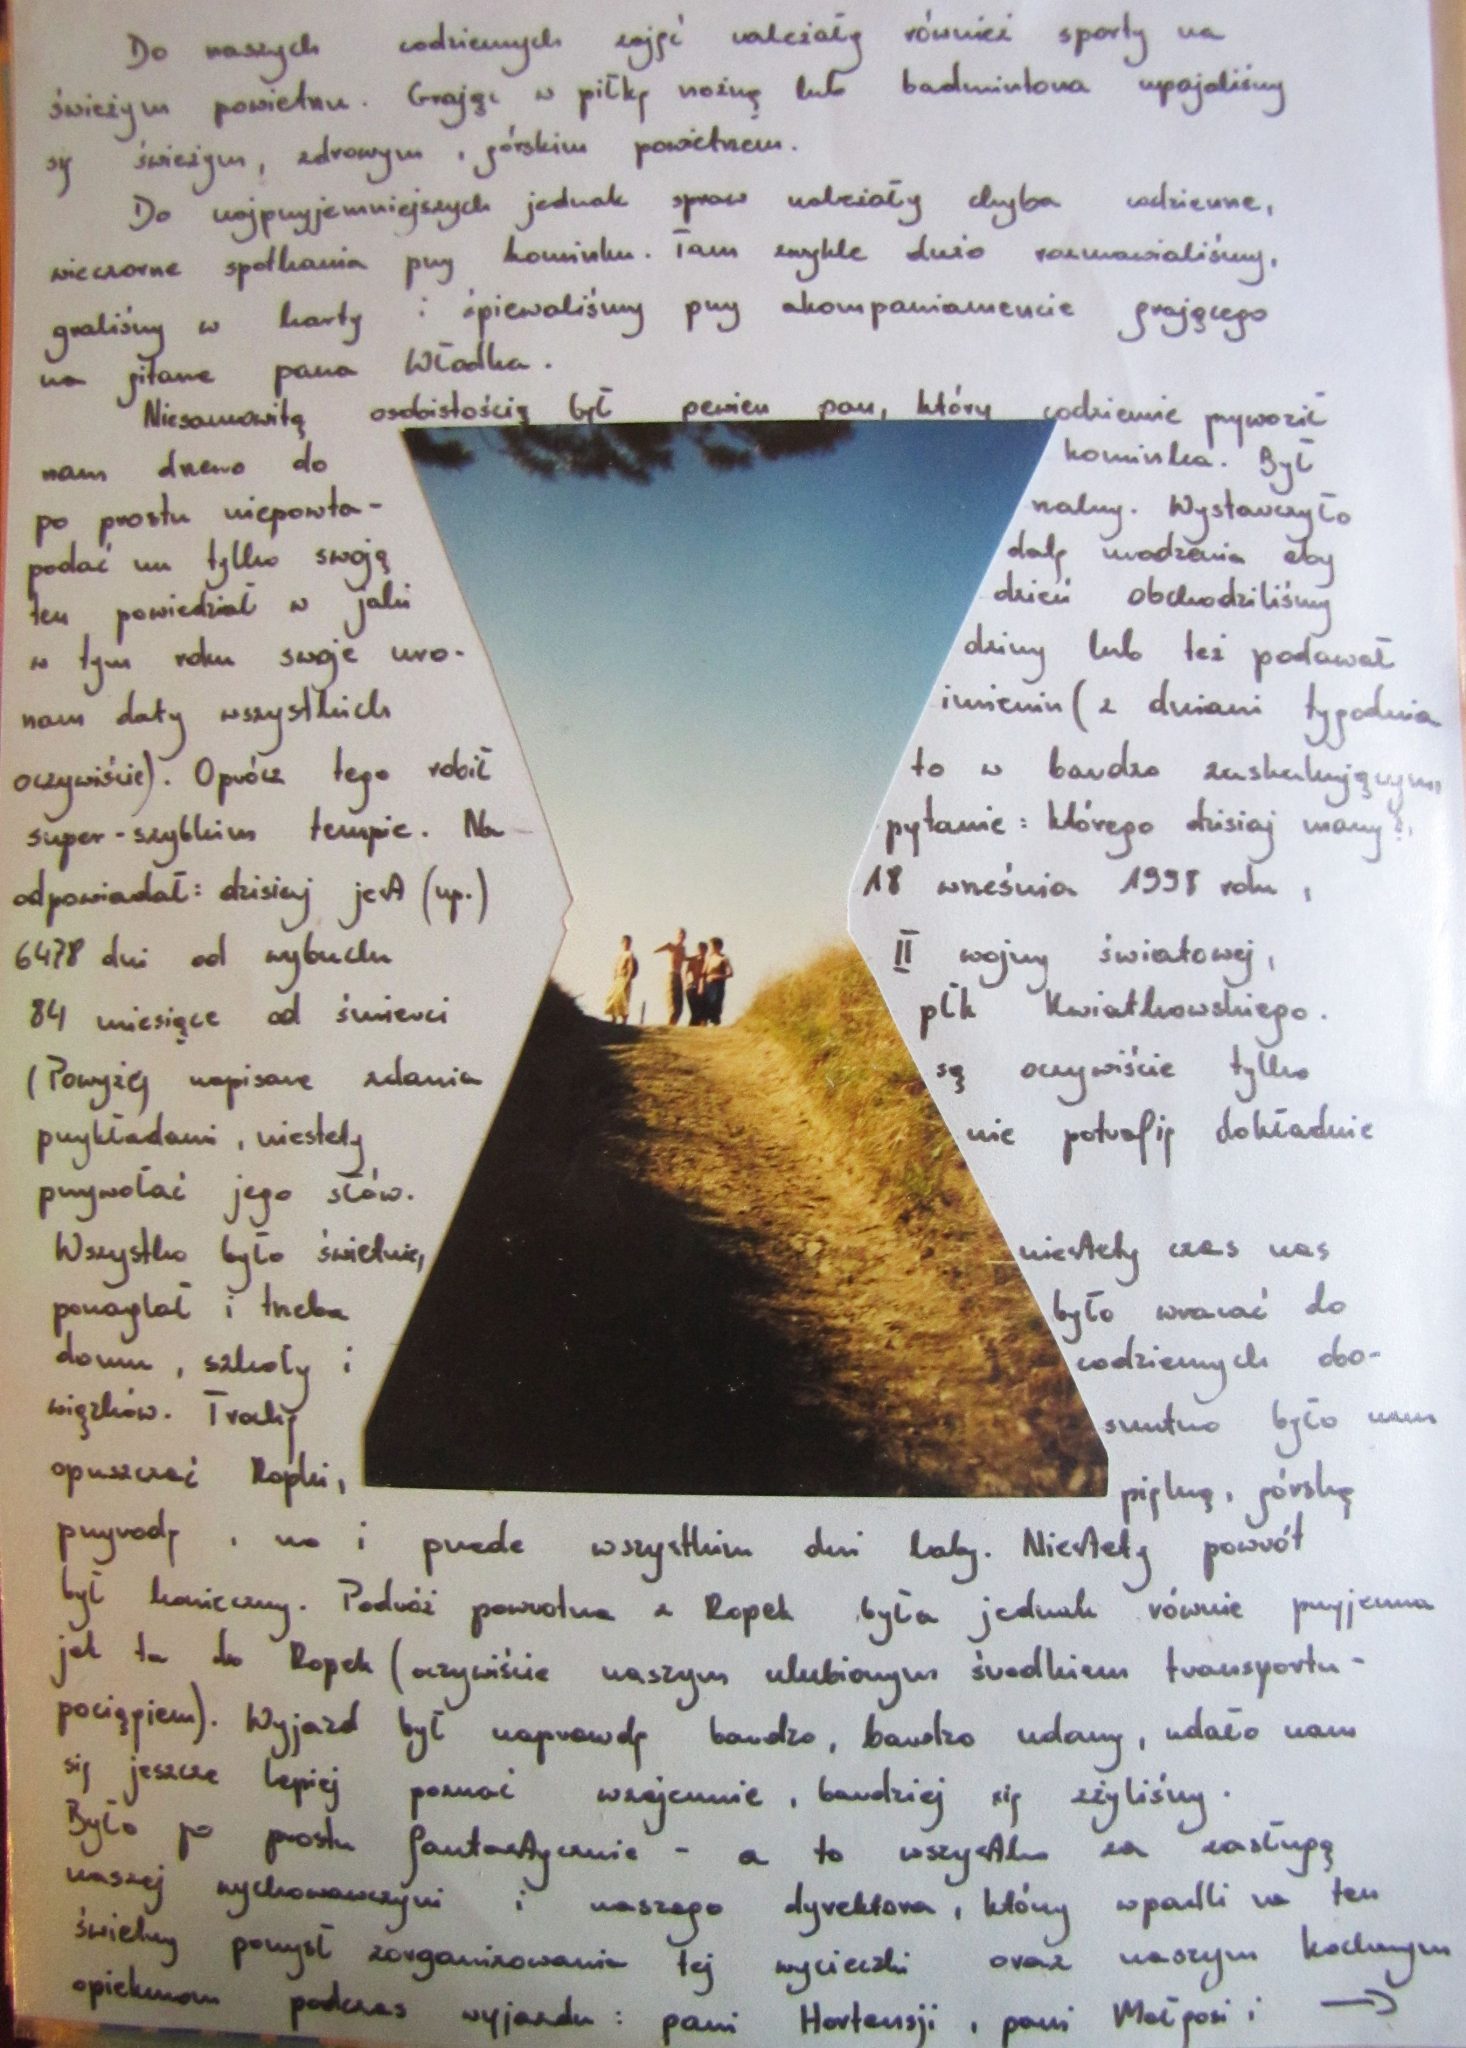 Do naszych codziennych zajęć należały również sporty na
świeżym powietrzu. Grając w piłkę nożną lub badmintona upajaliśmy
się świeżym, zdrowym, górskim powietrzem.
Do najprzyjemniejszych jednak spraw należały chyba codzienne,
wieczorne spotkania przy kominku. Tam zwykle dużo rozmawialiśmy,
graliśmy w karty i śpiewaliśmy przy akompaniamencie grającego
na gitarze pana Władka.
Niesamowitą osobistością był pewien pan, który codziennie przywoził
nam drzewo do kominka. Był
po prostu niepowta- rzalny. Wystarczyło
podać mu tylko swoją datę urodzenia aby
ten powiedział w jaki dzień obchodziliśmy
w tym roku swoje uro- dziny lub też podawał
nam daty wszystkich imienin (z dniami tygodnia
oczywiście). Oprócz tego robił to w bardzo zaskakującym,
super-szybkim tempie. Na pytanie: którego dzisiaj mamy?,
odpowiadał: dzisiaj jest (np.) 18 września 1998 roku,
6478 dni od wybuchu II wojny światowej,
84 miesiące od śmierci płk Kwiatkowskiego.
(Powyżej napisane zdania są oczywiście tylko
przykładami, niestety nie potrafię dokładnie
przywołać jego słów.
Wszystko było świetnie, niestety czas nas
ponaglał i trzeba było wracać do
domu, szkoły i codziennych obo-
wiązków. Trochę smutno było nam
opuszczać Ropki, piękną, górską
przyrodę, no i przede wszystkim dni laby. Niestety powrót
był konieczny. Podróż powrotna z Ropek była jednak równie przyjemna
jak ta do Ropek (oczywiście naszym ulubionym środkiem transportu -
pociągiem). Wyjazd był naprawdę bardzo, bardzo udany, udało nam
się jeszcze lepiej poznać wzajemnie, bardziej się zżyliśmy.
Było po prostu fantastycznie - a to wszystko za zasługą
naszej wychowawczyni i naszego dyrektora, którzy wpadli na ten
świetny pomysł zorganizowania tej wycieczki oraz naszym kochanym
opiekunom podczas wyjazdu: pani Hortensji, pani Małgosi i →